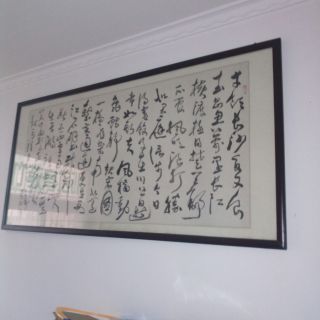 才饮长沙水又食
武昌鱼万里长江
横渡极目楚天舒
不管风吹浪打胜
似闲庭信步今日
得宽余子在川上曰逝
者如斯夫风樯动
龟蛇静起宏图
一桥飞架南北天
堑变通途更立西
江石壁